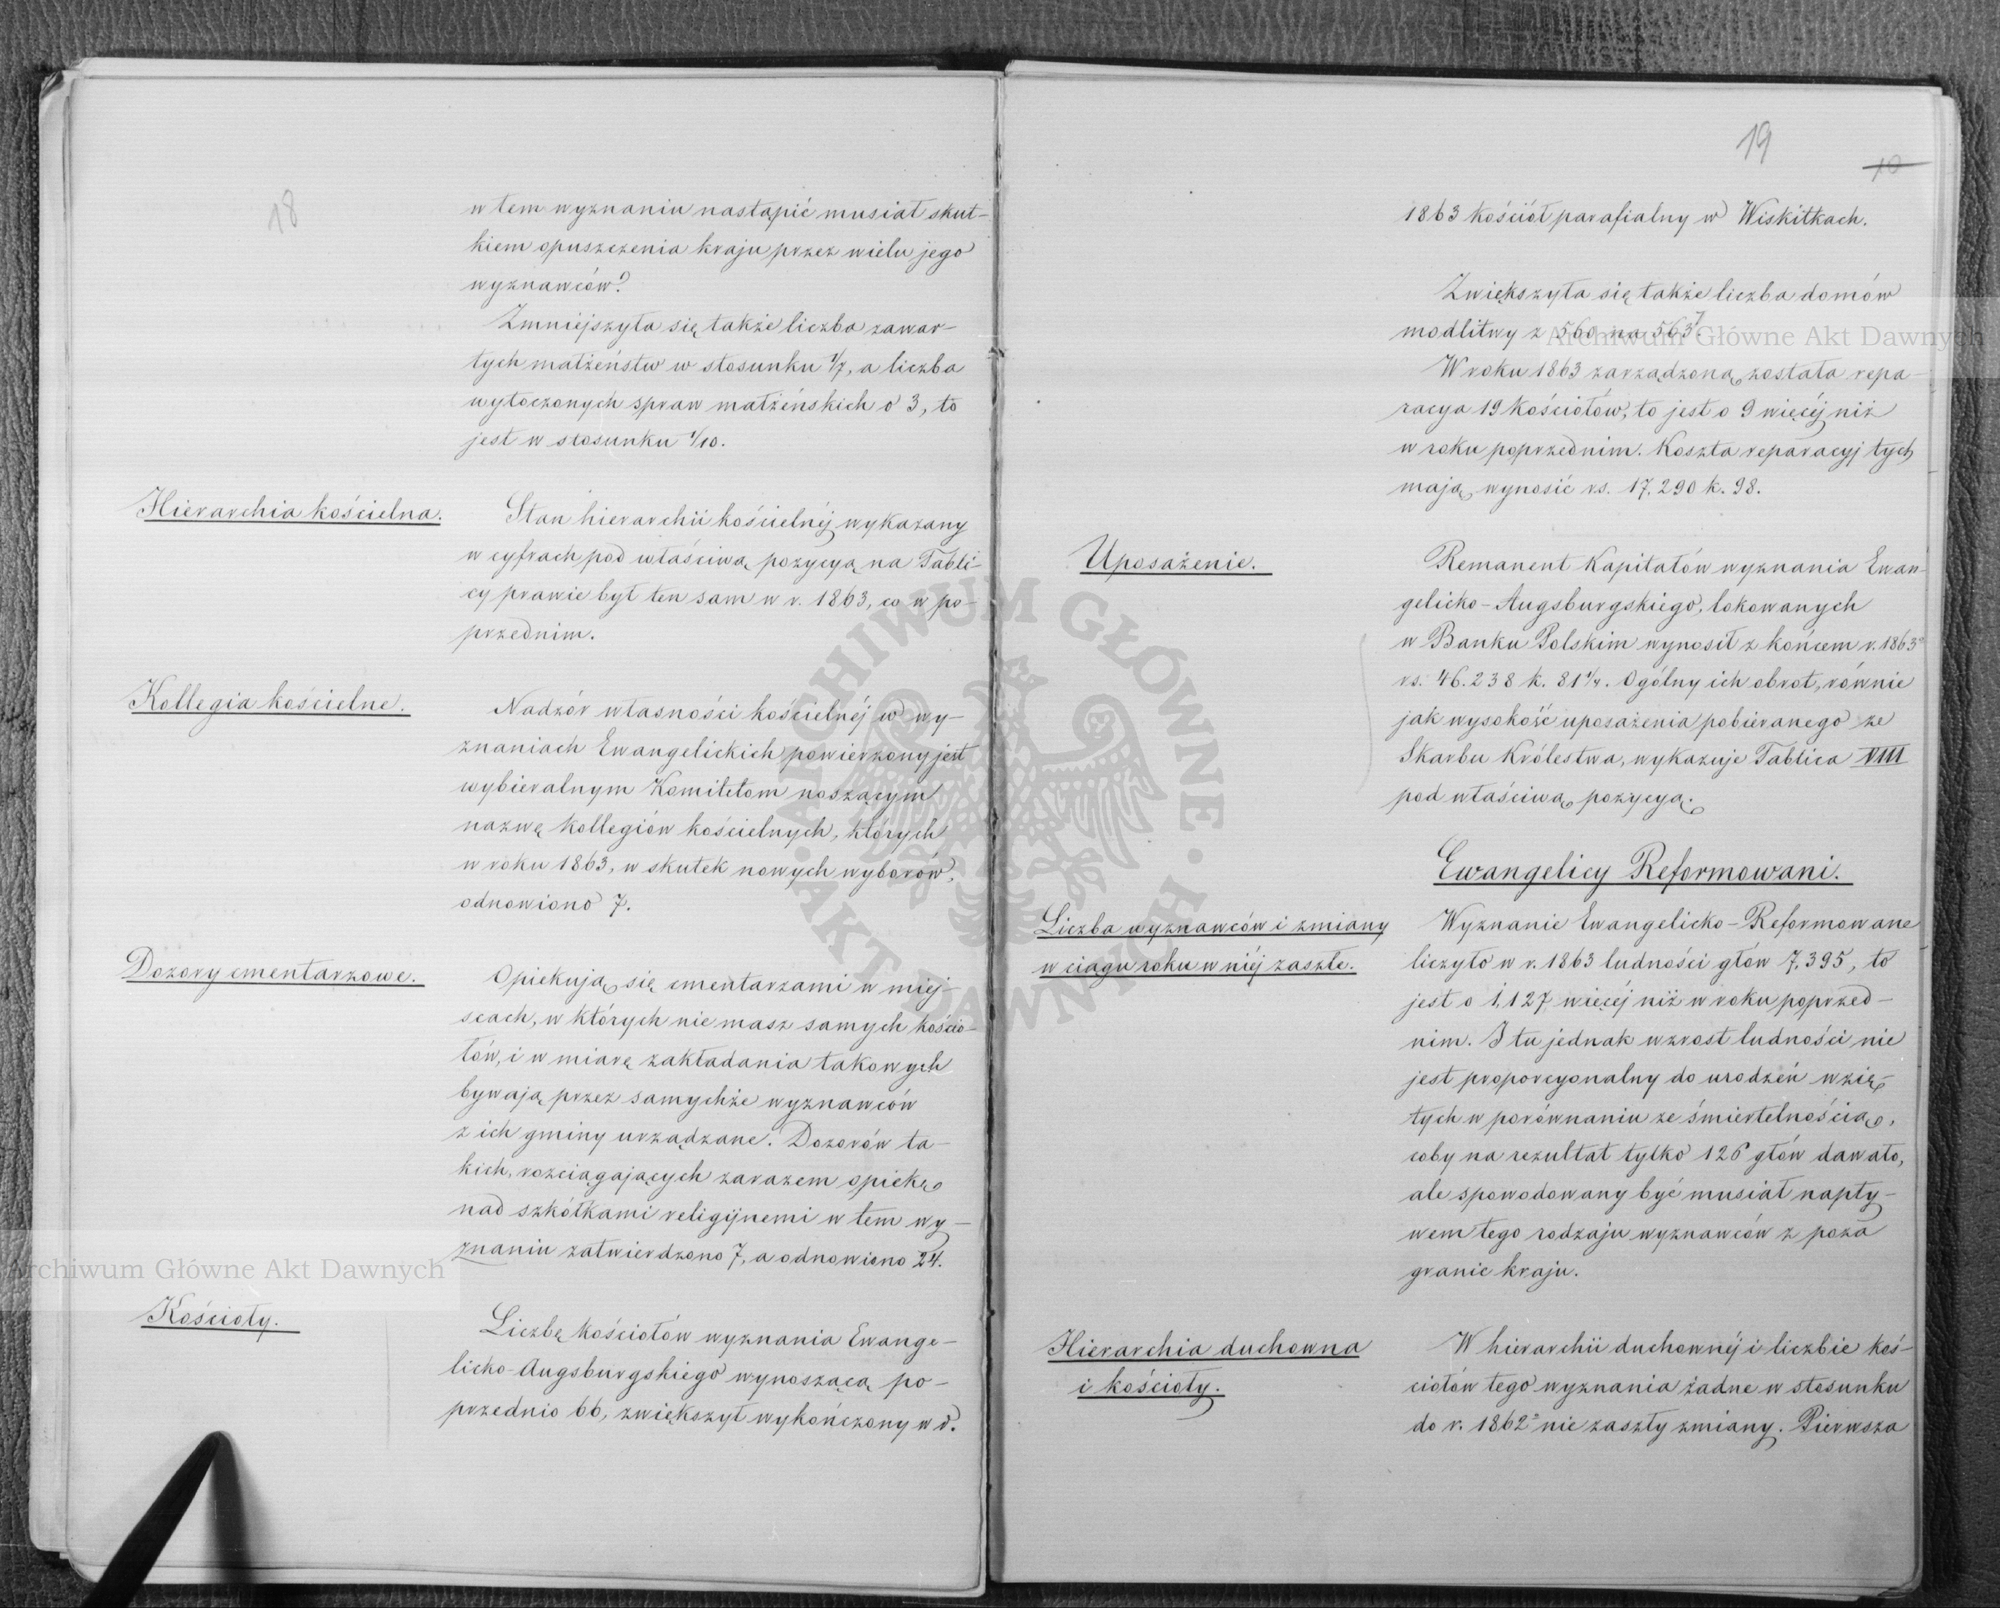 18
w tem wyznaniu nastąpić musiał skut-
kiem opuszczenia kraju przez wielu jego
wyznawców.
Zmniejszyła się także liczba zawar-
tych małżeństw w stosunku 1/7, a liczba
wytoczonych spraw małżeńskich o 3, to
jest w stosunku 1/10.
Hierarchia kościelna.
Stan hierarchii kościelnéj wykazany
w cyfrach pod właściwą pozycyą na Tabli-
cy prawie był ten sam w r. 1863, co w po-
przednim.
Kollegia kościelne.
Nadzór własności kościelnéj w wy-
znaniach Ewangelickich powierzony jest
wybieralnym Komitetom noszącym
nazwę kollegiów kościelnych, których
w roku 1863, w skutek nowych wyborów,
odnowiono 7.
Dozory cmentarzowe.
Opiekują się cmentarzami w miej-
scach, w których nie masz samych kościo-
łów, i w miarę zakładania takowych
bywają przez samychże wyznawców
z ich gminy urządzane. Dozorów ta-
kich, rozciągających zarazem opiekę
nad szkółkami religijnemi w tem wy-
znaniu zatwierdzono 7, a odnowiono 24.
Kościoły.
Liczbę kościołów wyznania Ewange-
licko-Augsburgskiego wynoszącą po-
przednio 66, zwiększył wykończony w r.
19
10
1863 kościół parafialny w Wiskitkach.
Zwiększyła się także liczba domów
modlitwy z 560 na 563.
W roku 1863 zarządzoną została repa-
racya 19 kościołów, to jest o 9 więcéj niż
w roku poprzednim. Koszta reparacyj tych
mają wynosić rs. 17,290 k. 98.
Uposażenie.
Remanent Kapitałów wyznania Ewan-
gelicko-Augsburgskiego, lokowanych
w Banku Polskim wynosił z końcem r. 1863
rs. 46.238 k. 81 1/4. Ogólny ich obrot, równie
jak wysokość uposażenia pobieranego ze
Skarbu Królestwa, wykazuje Tablica VIII
pod właściwą pozycyą.
Ewangelicy Reformowani.
Liczba wyznawców i zmiany
w ciągu roku w niéj zaszłe.
Wyznanie Ewangelicko-Reformowane
liczyło w r. 1863 ludności głów 7,395, to
jest o 1,127 więcéj niż w roku poprzed-
nim. I tu jednak wzrost ludności nie
jest proporcyonalny do urodzeń wzię-
tych w porównaniu ze śmiertelnością,
coby na rezultat tylko 126 głów dawało,
ale spowodowany być musiał napły-
wem tego rodzaju wyznawców z poza
granic kraju.
Hierarchia duchowna
i kościoły.
W hierarchii duchownéj i liczbie koś-
ciołów tego wyznania żadne w stosunku
do r. 1862 nie zaszły zmiany. Pierwsza
Archiwum Główne Akt Dawnych
Archiwum Główne Akt Dawnych
ARCHIWUM GŁÓWNE AKT DAWNYCH